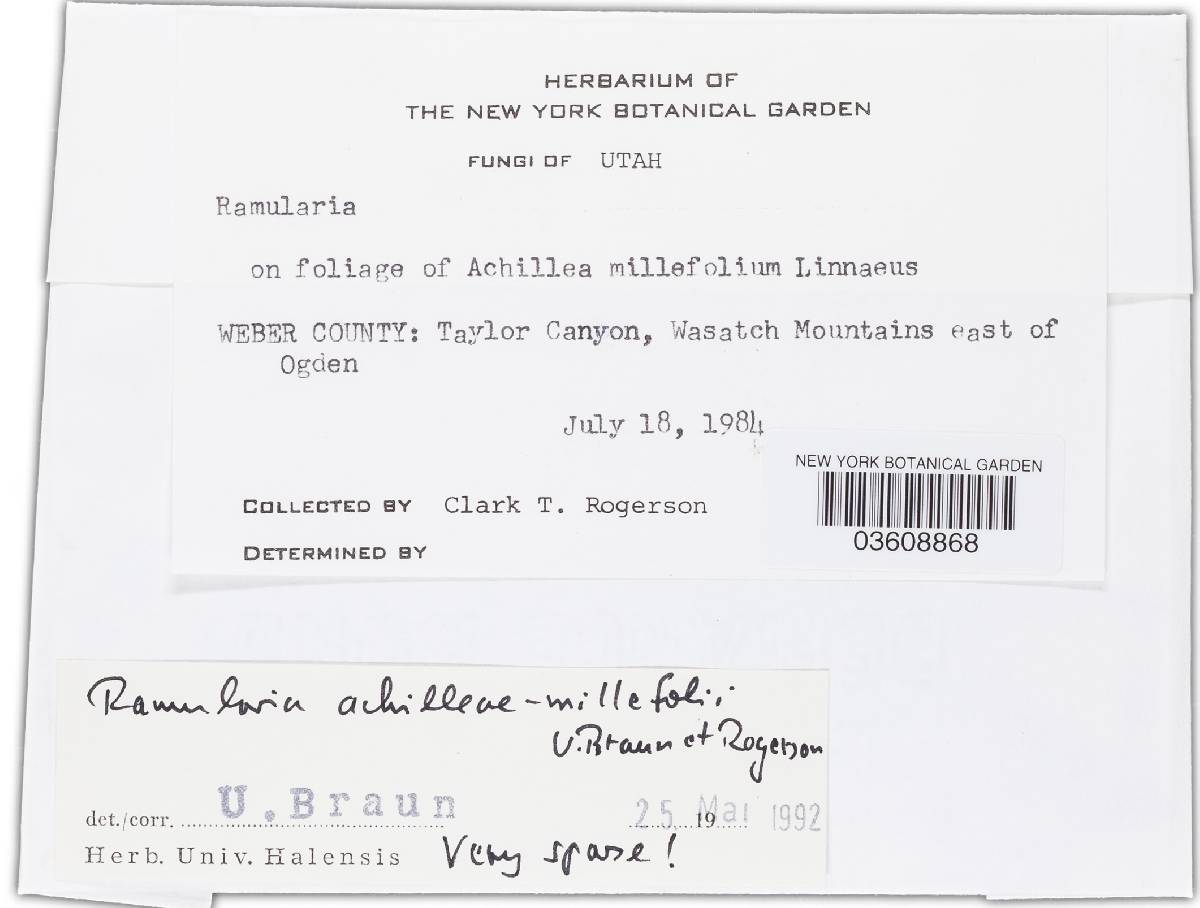 HERBARIUM OF
THE NEW YORK BOTANICAL GARDEN
FUNGI OF UTAH
Ramularia
on foliage of Achillea millefolium Linnaeus
WEBER COUNTY: Taylor Canyon, Wasatch Mountains east of
Ogden
July 18, 1984
COLLECTED BY Clark T. Rogerson
DETERMINED BY
NEW YORK BOTANICAL GARDEN
03608868
Ramularia achilleae-millefolii
U. Braun et Rogerson
det./corr. U. Braun 25. Mai 1992 19
Herb. Univ. Halensis Very sparse!